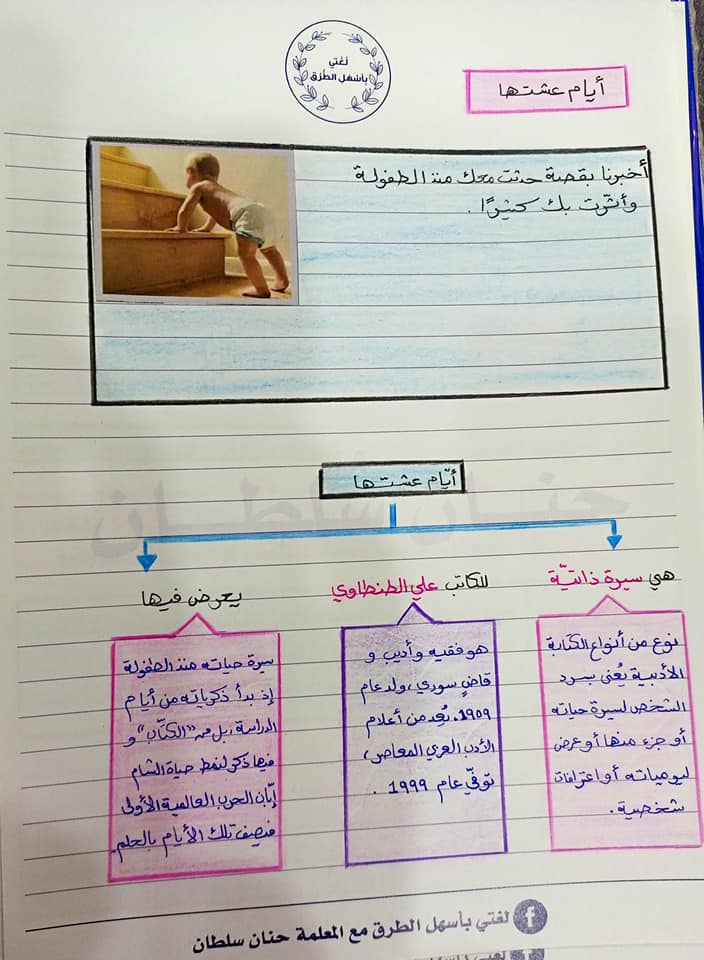 لغتي
بأسهل الطرق
أيام عشتها
أخبرنا بقصة حدثت معك منذ الطفولة
وأثّرت بك كثيرًا.
أيّام عشتها
حنان سلطان
هي سيرة ذاتيّة
نوع من أنواع الكتابة
الأدبية يُعنى بسرد
الشخص لسيرة حياته
أو جزء منها أو عرض
ليومياته أو اعترافات
شخصية.
للكاتب علي الطنطاوي
هو فقيه وأديب و
قاضٍ سوري، ولد عام
1909، يُعد من أعلام
الأدب العربي المعاصر،
توفّي عام 1999.
يعرض فيها
سيرة حياته منذ الطفولة
إذ بدأ ذكرياته من أيام
الدراسة، بل من "الكتّاب" و
فيها ذكر لنمط حياة الشام
إبّان الحرب العالمية الأولى
فيصف تلك الأيام بالحلم.
لغتي بأسهل الطرق مع المعلمة حنان سلطان